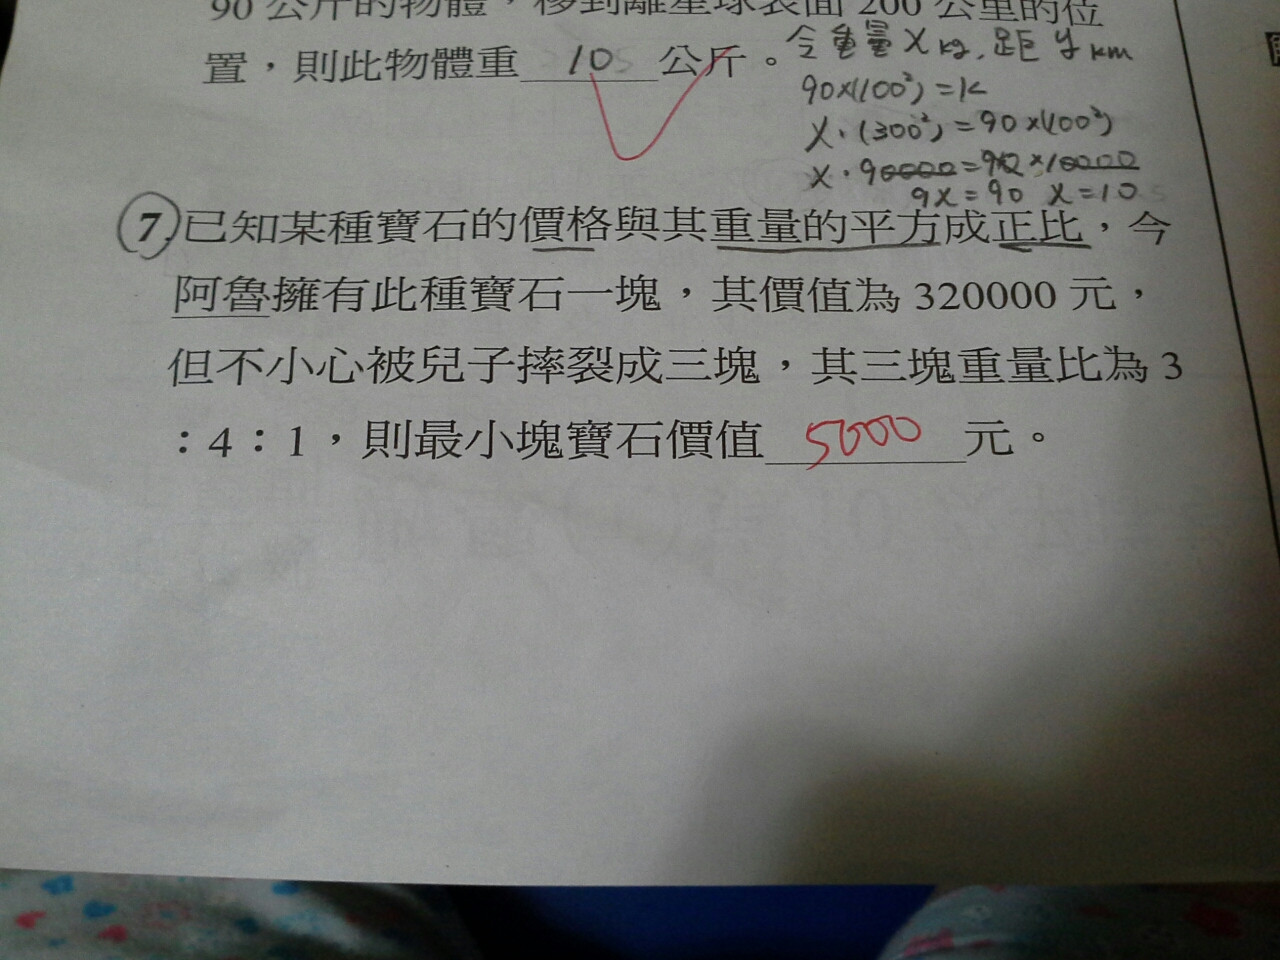 90 公斤的物體，移到離星球表面 200 公里的位
置，則此物體重 10 公斤。
令重量 X kg, 距 y km
90×(100²)=K
X·(300²)=90×(100²)
X·90000=90×10000
9X=90 X=10
7. 已知某種寶石的價格與其重量的平方成正比，今
阿魯擁有此種寶石一塊，其價值為 320000 元，
但不小心被兒子摔裂成三塊，其三塊重量比為 3
：4：1，則最小塊寶石價值 5000 元。